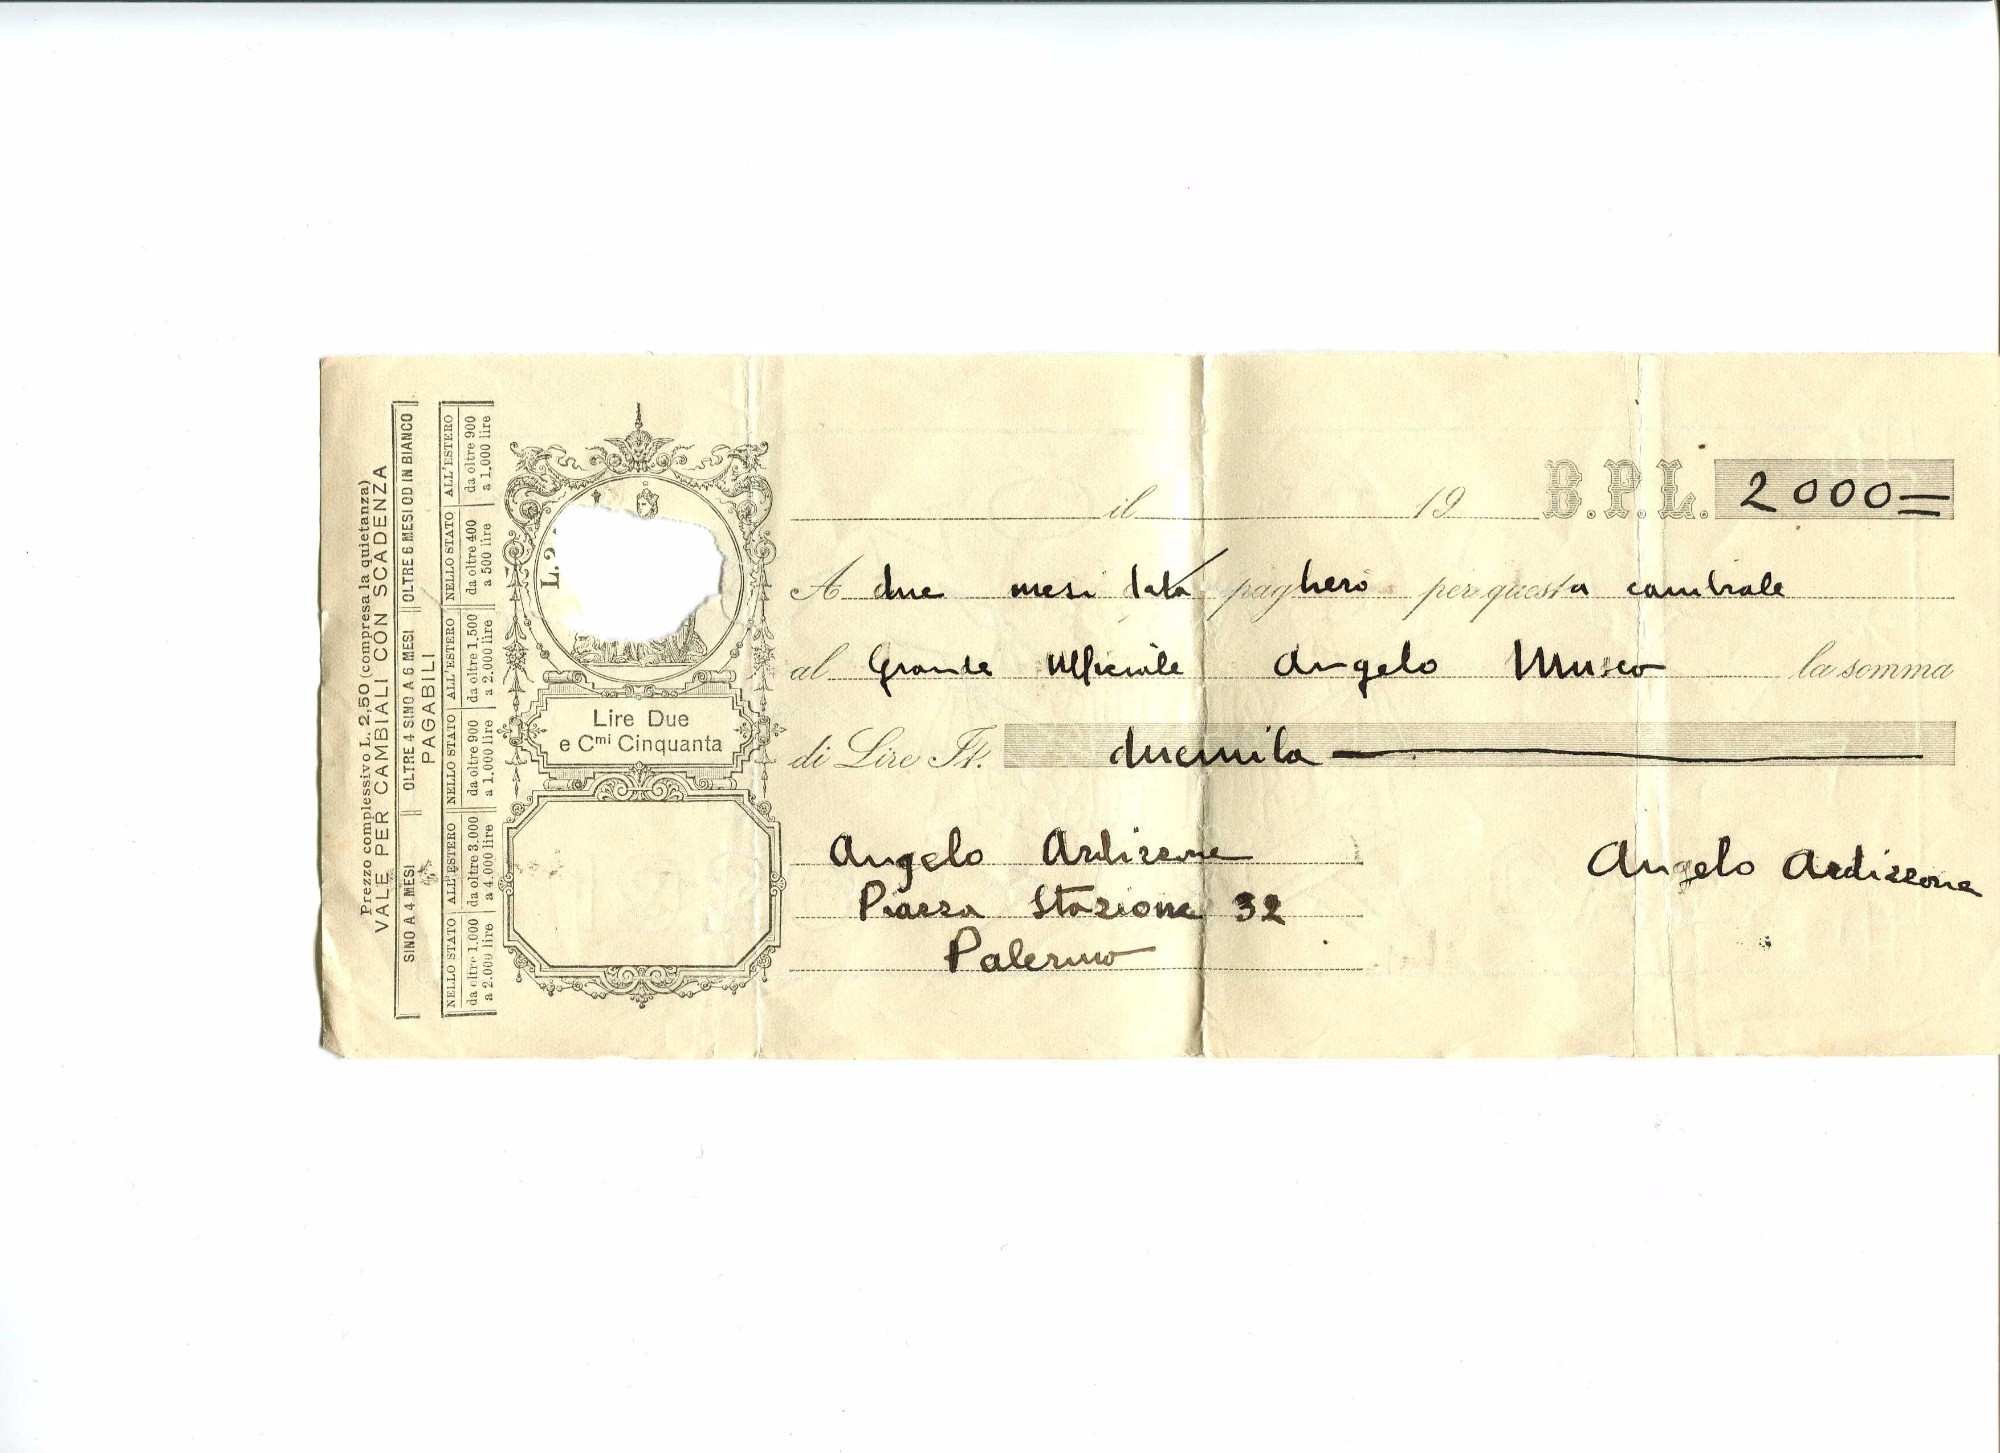 Prezzo complessivo L. 2,50 (compresa la quietanza)
VALE PER CAMBIALI CON SCADENZA
SINO A 4 MESI OLTRE 4 SINO A 6 MESI OLTRE 6 MESI OD IN BIANCO
PAGABILI
NELLO STATO ALL'ESTERO NELLO STATO ALL'ESTERO NELLO STATO ALL'ESTERO
da oltre 1.000 da oltre 3.000 da oltre 900 da oltre 1,500 da oltre 400 da oltre 900
a 2.000 lire a 4.000 lire a 1.000 lire a 2.000 lire a 500 lire a 1,000 lire
L. 2
Lire Due
e Cmi Cinquanta
il 19 B.P.L. 2000=
A due mesi data pagherò per questa cambiale
al Grande Ufficiale Angelo Musco la somma
di Lire It. duemila
Angelo Ardizzone Angelo Ardizzone
Piazza Stazione 32
Palermo